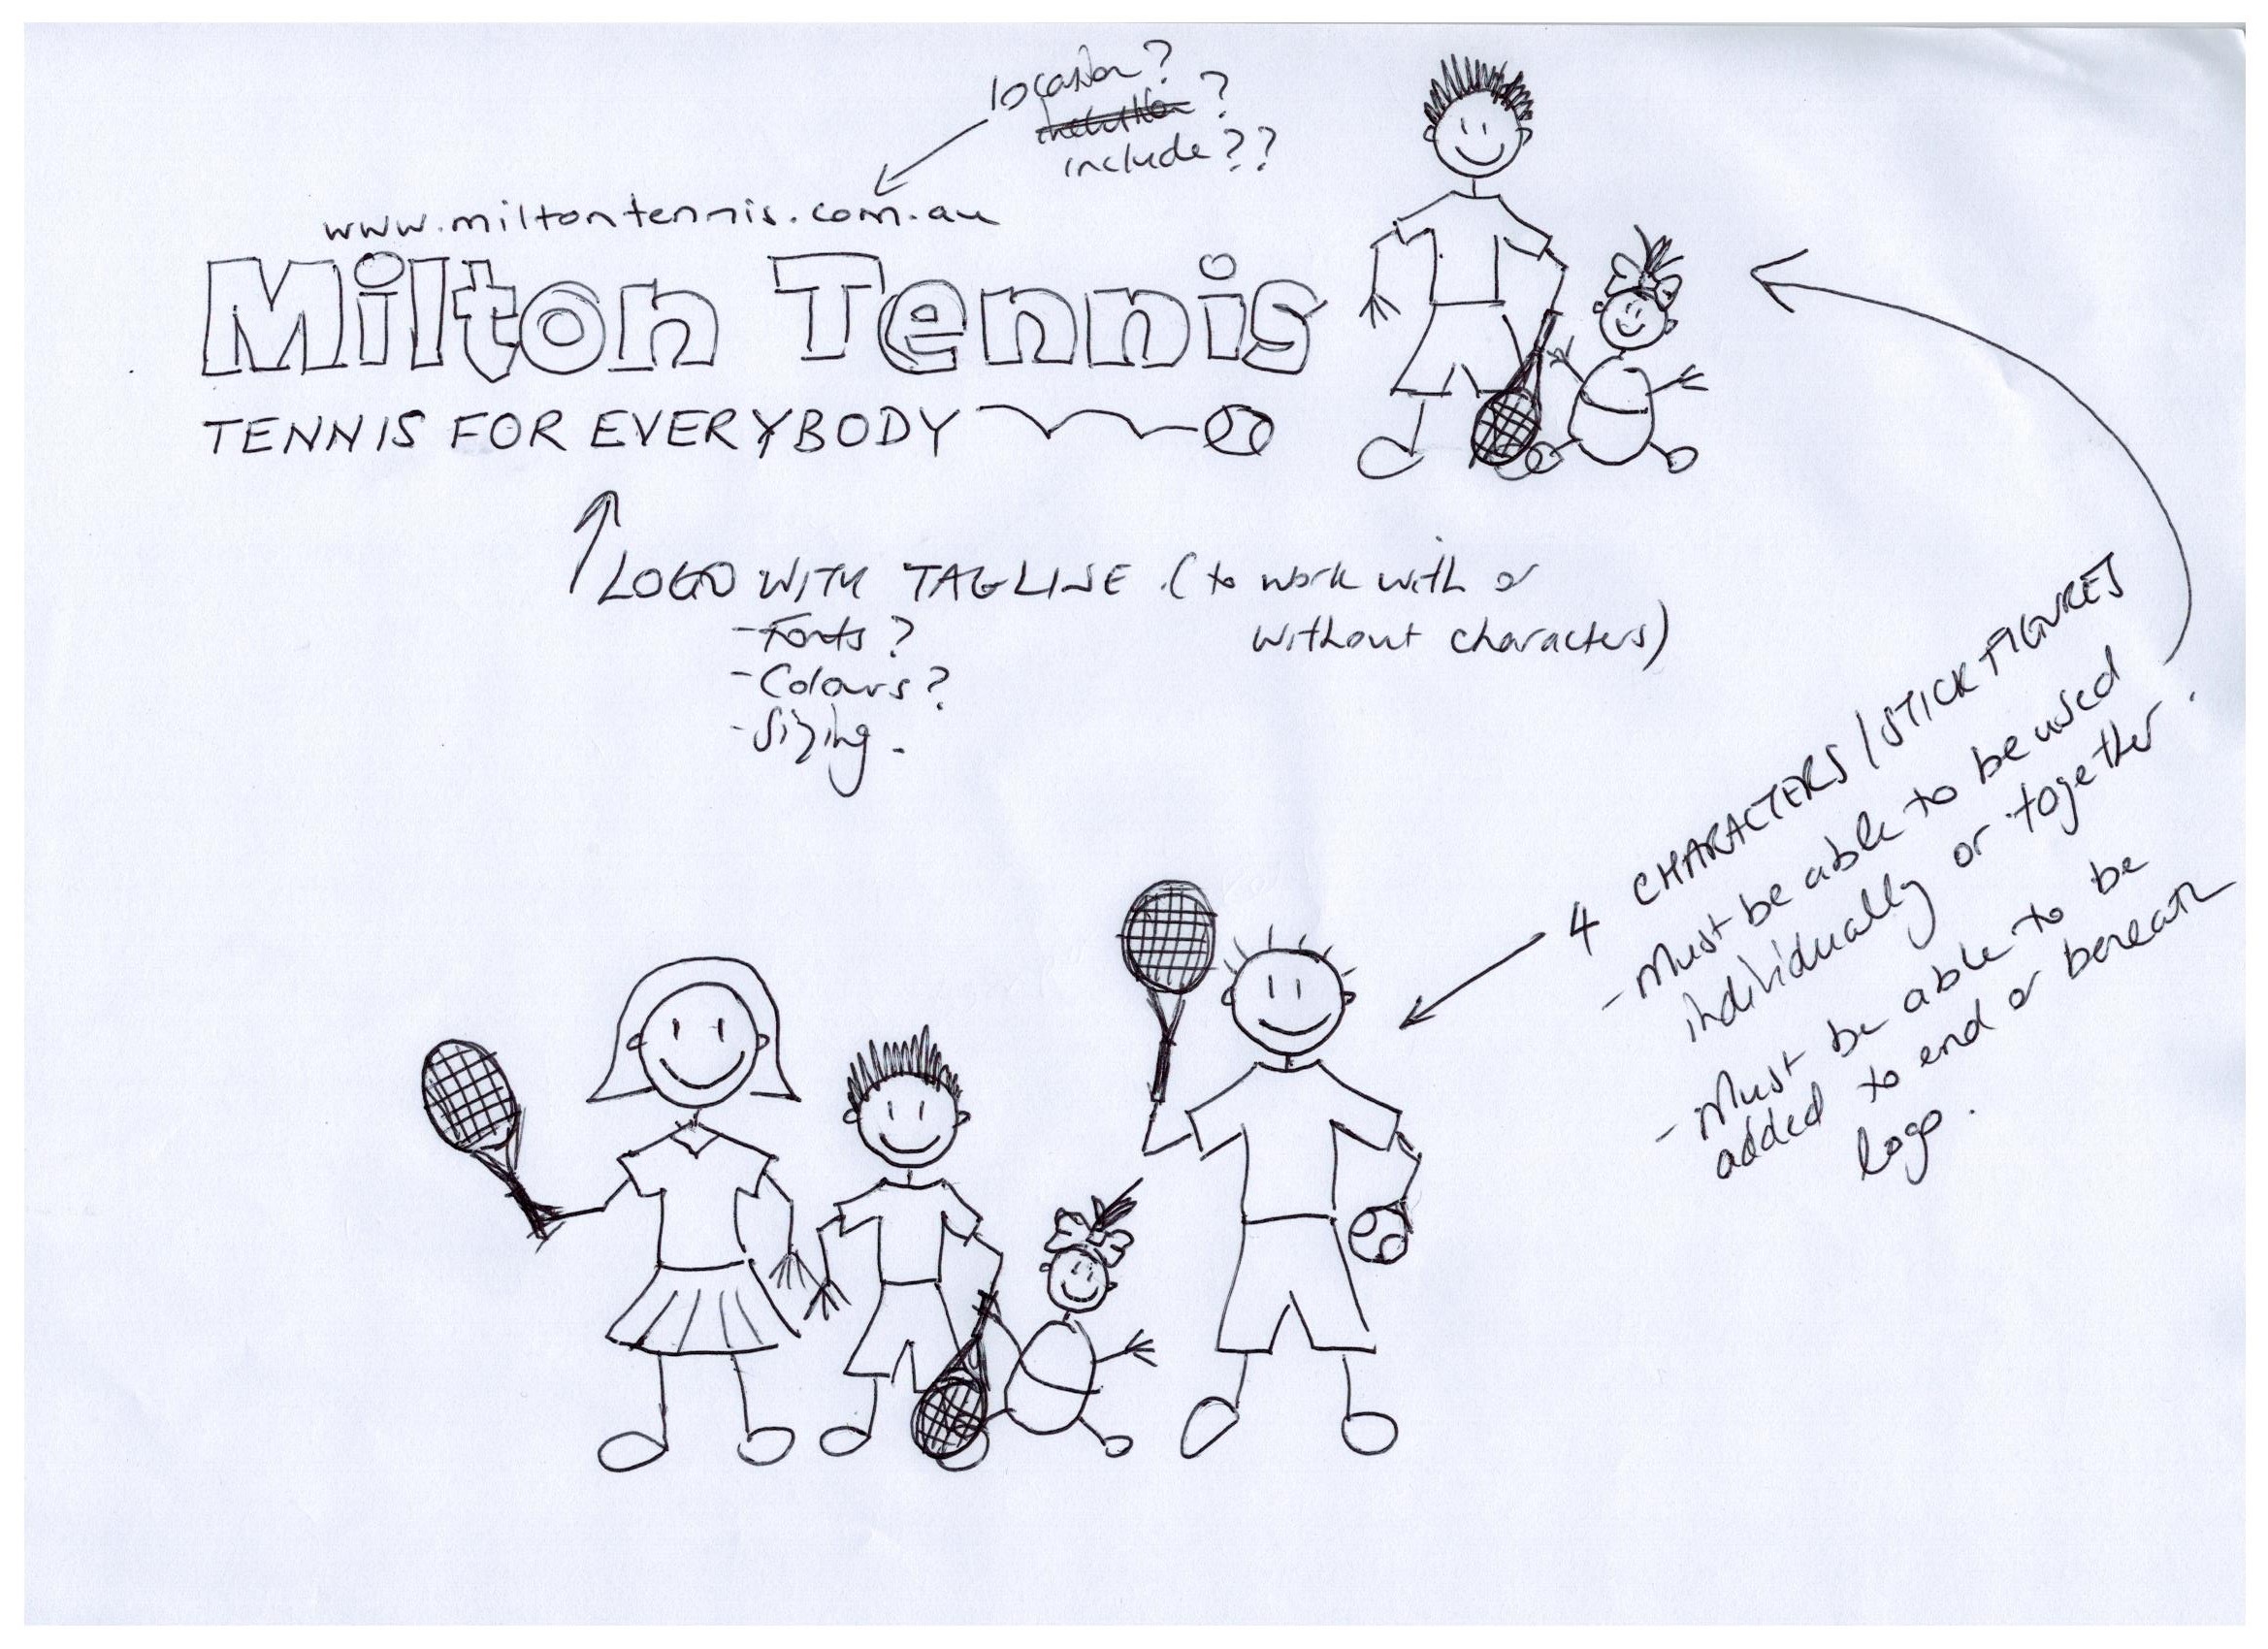 location?
?
include??
www.miltontennis.com.au
Milton Tennis
TENNIS FOR EVERYBODY
LOGO WITH TAGLINE. (to work with or
without characters)
- Fonts?
- Colours?
- Sizing.
4 CHARACTERS / STICK FIGURES
- Must be able to be used
individually or together.
- Must be able to be
added to end or beneath
logo.